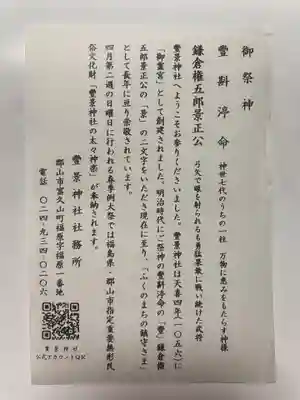 御祭神
豐斟渟命 神世七代のうちの一柱 万物に恵みをもたらす神様
鎌倉権五郎景正公 弓矢で眼を射られるも勇猛果敢に戦い続けた武将
豐景神社へようこそお参りくださいました。豐景神社は天喜四年(一〇五六)に
「御霊宮」として創建されました。明治時代にご祭神の豐斟渟命の「豐」鎌倉権
五郎景正公の「景」の二文字をいただき現在に至り、「ふくのまちの鎮守さま」
として長年に亘り崇敬されています。
四月第二週の日曜日に行われる春季例大祭では福島県・郡山市指定重要無形民
俗文化財「豐景神社の太々神楽」が奉納されます。
豐景神社社務所
郡山市富久山町福原字福原一番地
電話 〇二四-九三四-〇二〇六
豐景神社
公式アカウントQR